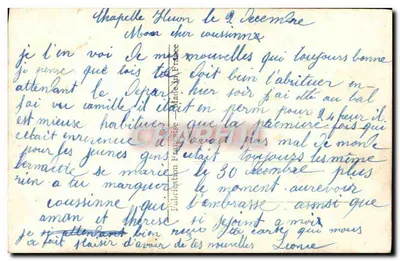 Chapelle Heuon le 9 Decembre
Mon cher coussinne
je t'en voi de mes nouvelles qui toujours bonne
je pense que toi tu doit bien t'abituer en
attenlant le Depar hier soir j'ai été au bal
j'ai vu camille il était en perm pour 24 feur il
est mieuse habituer que la première fois qui
était enrevenue il y avait pas mal de monde
pour les jeunes gens c'était toujours les même
bernadette se marie le 30 decembre plus
rien a tu marquer le moment aurevoir
coussinne qui t'embrasse ainsi que
aman et thérèse si dejoint a moi
je si attenlant bien reçu ta carte qui nous
a fait plaisir d'avoir de tes nouvelles Leonie
Fabrication Française - Made in France